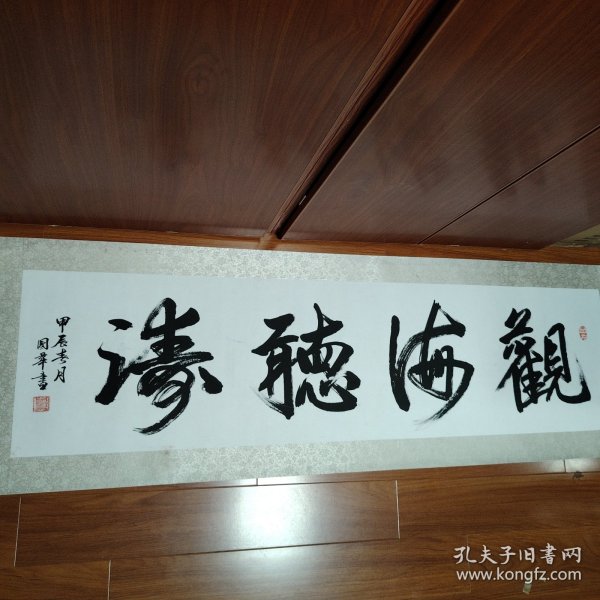 觀海聽濤
甲辰春月
国華書
孔夫子旧書网
www.kongfz.com